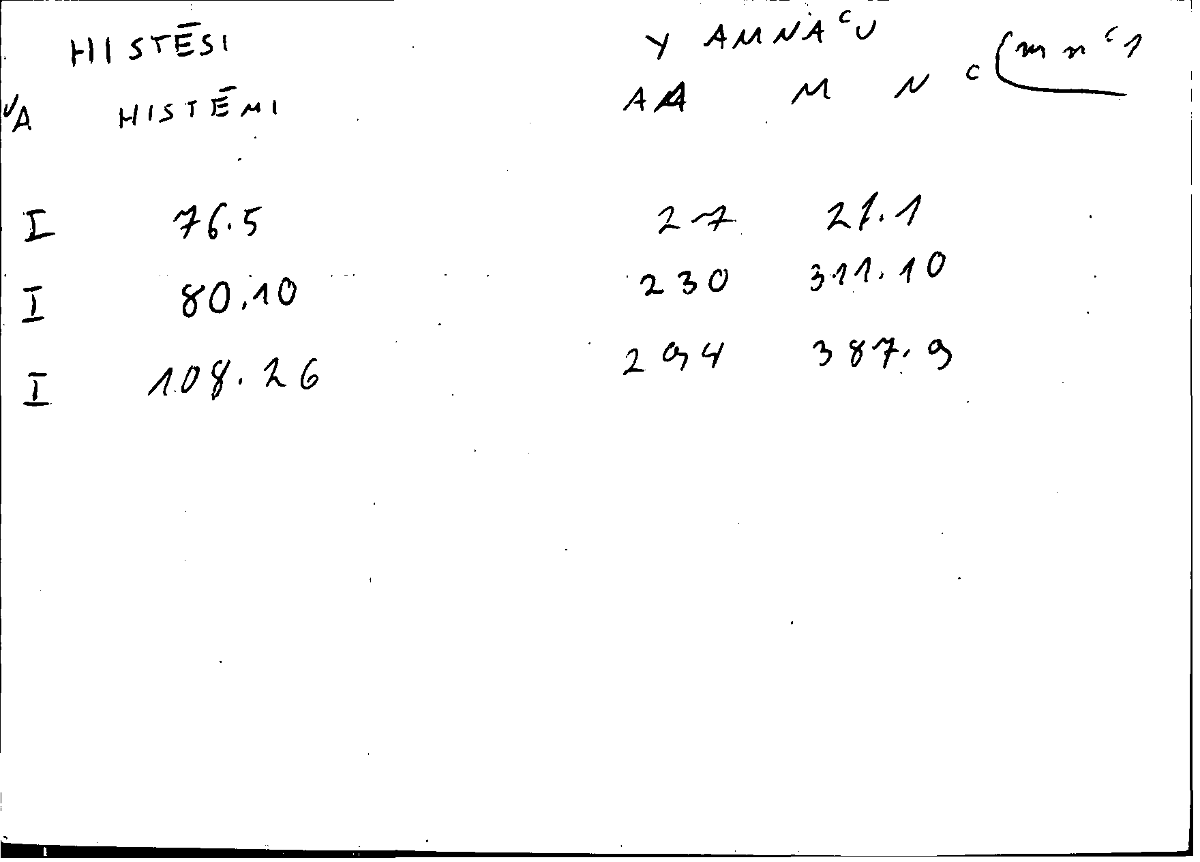 HISTĒSI Y AMNAᶜU
ᵛA HISTĒMI AA M N ᶜ (m n ᶜ 1
I 76.5 27 21.1
I 80.10 230 311.10
I 108.26 294 387.9